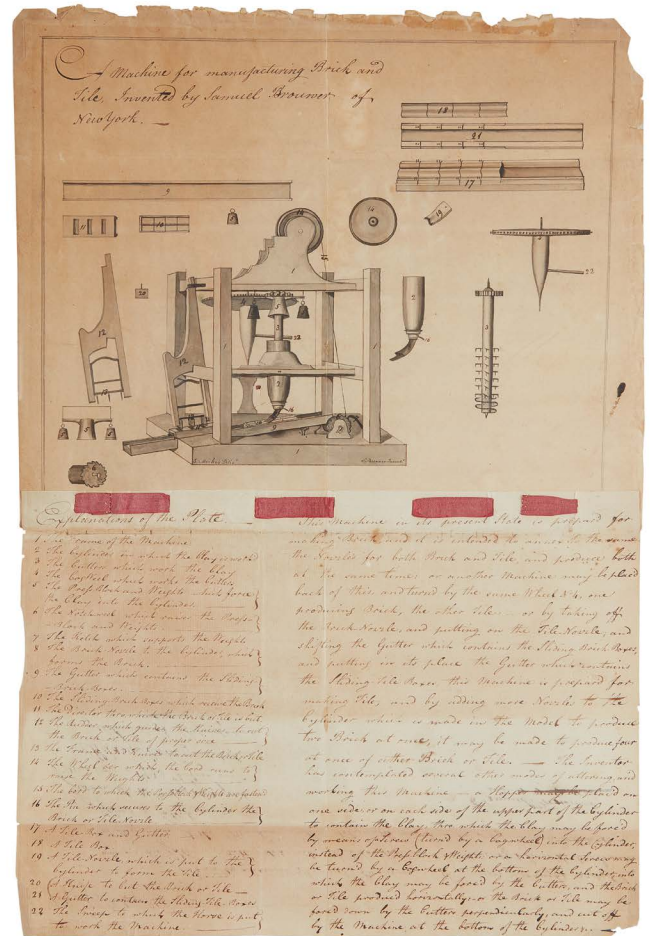 A Machine for manufacturing Brick and
Tile, Invented by Samuel Brouwer of
New York. —
18
21
17
9
11
10
14
19
22
20
12
2
3
5
1
Explanations of the Plate.
1 The frame of the Machine
2 The Cylinder in which the Clay is worked
3 The Cutters which work the Clay
4 The Cogwheel which works the Cutters
5 The Pressblock and Weights which force
the Clay into the Cylinder
6 The which raises the
Block and Weights
7 The which supports the Weights
8 The Brick Nozzle to the Cylinder, which
forms the Brick.
9 The Gutter which contains the Sliding
Brick Boxes.
10 The Sliding Brick Boxes which receive the Brick
11 The where the Brick or Tile is cut
12 The which guides the to cut
the Brick or Tile of proper size
13 The Frame and Knives to cut the Brick or Tile
14 The Wheel over which the Cord runs to
raise the Weights
15 The Cord to which the Pressblock & Weights are fastened
16 The Pin which secures to the Cylinder the
Brick or Tile Nozzle
17 A Tile Box and Gutter
18 A Tile Box
19 A Tile Nozzle which is put to the
Cylinder to form the Tile
20 A Knife to cut the Brick or Tile
21 A Gutter to contain the Sliding Tile Boxes
22 The Sweep to which the Horse is put
to work the Machine.
This Machine in its present State is prepared for
making Brick and it is intended to answer to the same
the Nozzles for both Brick and Tile, and produce both
at the same time; or another Machine may be placed
back of this and turned by the same Wheel No. 4, one
producing Brick, the other Tile: or by taking off
the Brick Nozzle, and putting on the Tile Nozzle, and
shifting the Gutter which contains the Sliding Brick Boxes,
and putting in its place the Gutter which contains
the Sliding Tile Boxes, this Machine is prepared for
making Tile, and by adding more Nozzles to the
Cylinder which is made in the Model to produce
two Brick at once, it may be made to produce four
at once of either Brick or Tile. — The Inventor
has contemplated several other modes of altering, and
working this Machine — a Hopper may be placed on
one side or on each side of the upper part of the Cylinder
to contain the Clay, thro which the Clay may be forced
by means of Screws (turned by a Cogwheel) into the Cylinder,
instead of the Pressblock & Weights. or a horizontal Screw may
be turned by a Cogwheel at the bottom of the Cylinder, into
which the Clay may be forced by the Cutters, and the Brick
or Tile produced horizontally, or the Brick or Tile may be
forced down by the Cutters perpendicularly, and cut off
by the Machine at the bottom of the Cylinder.